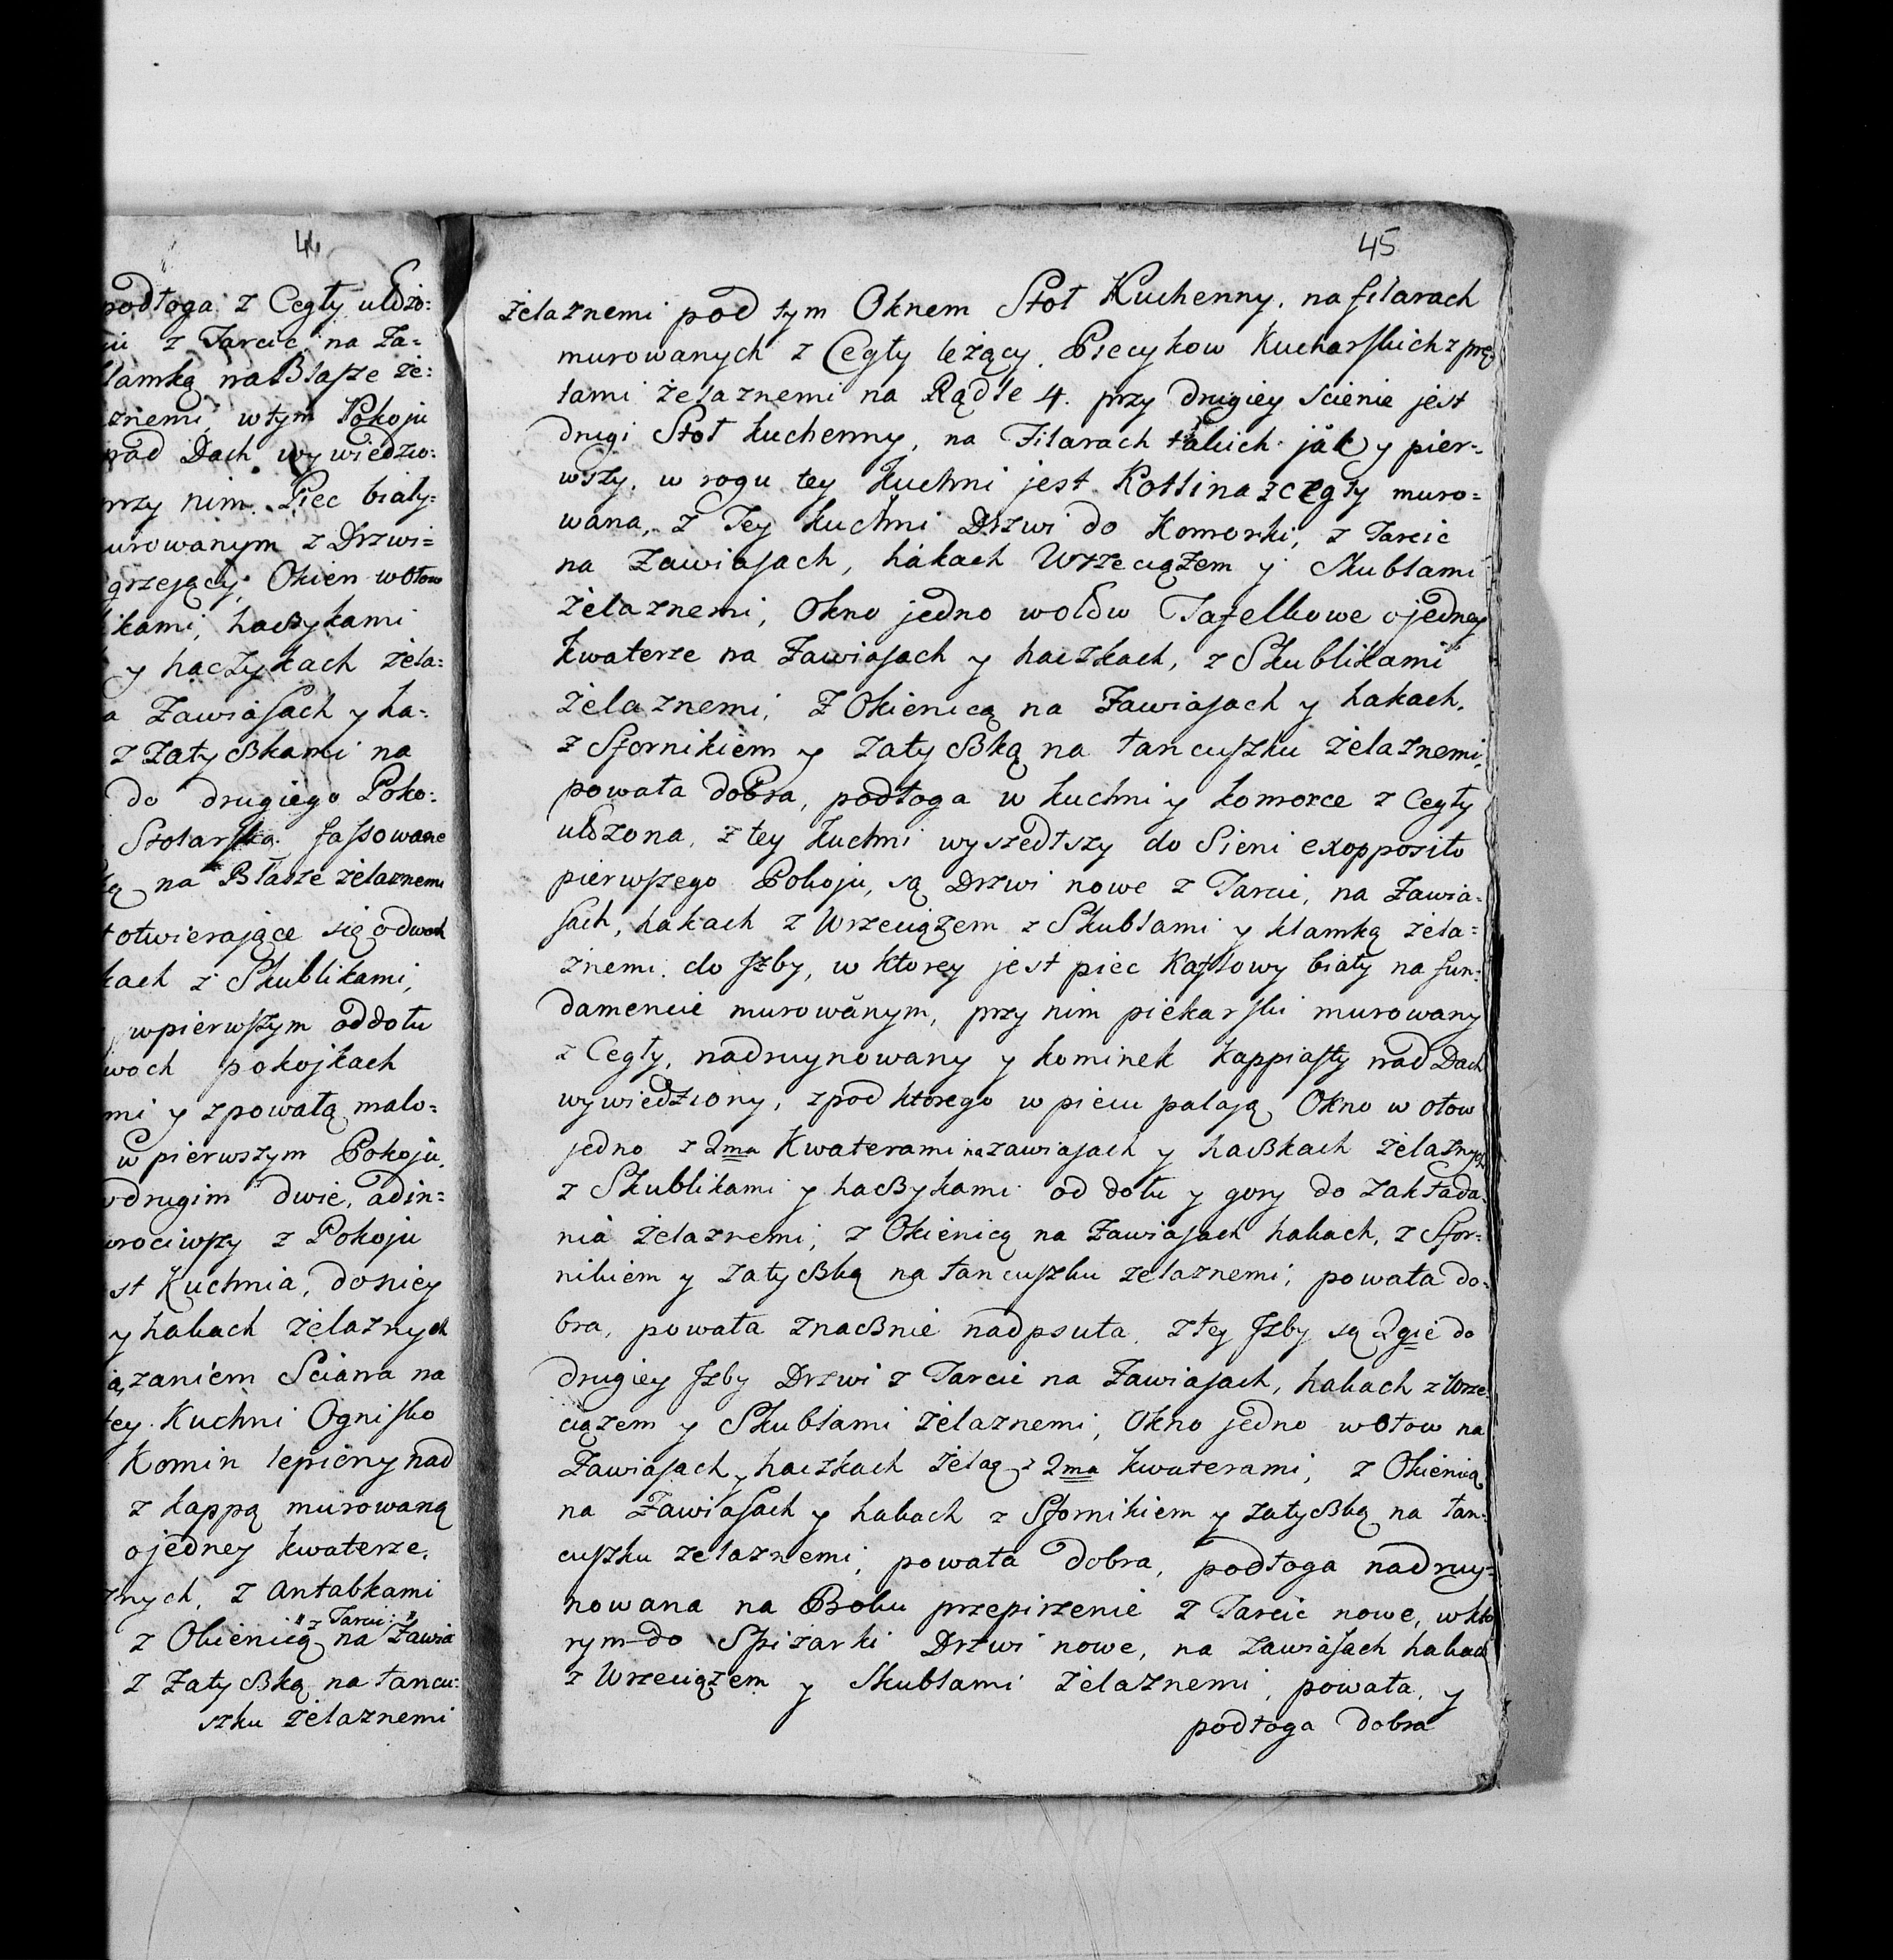 44
podłoga z Cegły ułożo:
z Tarcic na Za=
klamką na Blasze że:
znemi, wtym Pokoju
nad Dach wywiedzio:
przy nim Piec biały:
murowanym z Drzwi=
grzejący, Okien wołow
likami, haczykami
y haczykach żela:
a Zawiasach y ha:
z Zatyczkami na
do drugiego Poko:
Stolarską fassowane
ką na Blasze żelaznemi
otwierające się odwoch
kach z Skublikami,
wpierwszym oddołu
woch pokojkach
mi y zpowałą malo=
w pierwszym Pokoju,
wdrugim dwie, adin=
wrociwszy z Pokoju
st Kuchnia, doniey
y hakach żelaznych
ązaniem Sciana na
tey Kuchni Ognisko
Komin lepiony nad
z kappą murowaną
ojedney kwaterze,
znych, z Antabkami
" z Tarcic "
z Okienicą na Zawia
z Zatyczką na łancu:
szku żelaznemi
45
żelaznemi pod tym Oknem Stoł Kuchenny, na filarach
murowanych z Cegły leżący. Piecykow Kucharskich z prę
tami żelaznemi na Rądle 4. przy drugiey scienie jest
drugi Stoł kuchenny, na Filarach takich jak y pier=
wszy, w rogu tey kuchni jest Kotlina z cegły muro=
wana, z Tey kuchni Drzwi do Komorki, z Tarcic
na Zawiasach, hakach Wrzeciązem y Skublami
żelaznemi, Okno jedno wołow Tafelkowe ojedney
kwaterze na Zawiasach y haczkach, z Skublikami
żelaznemi, z Okienicą na Zawiasach y hakach,
z Sfornikiem y zatyczką na łancuszku żelaznemi,
powała dobra, podłoga w kuchni y komorce z Cegły
ułożona, z tey kuchni wyszedłszy do Sieni exopposito
pierwszego Pokoju, są Drzwi nowe z Tarcic, na Zawia=
sach, hakach z Wrzeciązem z Skublami y klamką żela=
znemi, do Jzby, w ktorey jest piec Kaflowy biały na fun=
damencie murowanym, przy nim piekarski murowany
z Cegły, nadruynowany y kominek kappiasty nad Dach
wywiedziony, zpod ktorego w piecu palają Okno w ołow
jedno z 2ma Kwaterami na zawiasach y haczkach żelaznych
z Skublikami y haczykami od dołu y gory do zakłada=
nia żelaznemi, z Okienicą na Zawiasach hakach, z Sfor=
nikiem y zatyczką na łancuszku zelaznemi, powała do=
bra, powała znacznie nadpsuta, z tey Jzby są 2gie do
drugiey Jzby Drzwi z Tarcic na Zawiasach, hakach z Wrze=
ciązem y Skublami żelaznemi, Okno jedno wołow na
Zawiasach y haczkach żelaz z 2ma kwaterami, z Okienicą
na Zawiasach y hakach z Sfornikiem y zatyczką na łan=
cuszku zelaznemi, powała dobra, podłoga nadruy=
nowana na Boku przepirzenie z Tarcic nowe, wkto
rym do Spizarki Drzwi nowe, na zawiasach hakach
z Wrzeciązem y Skublami żelaznemi, powała y
podłoga dobra